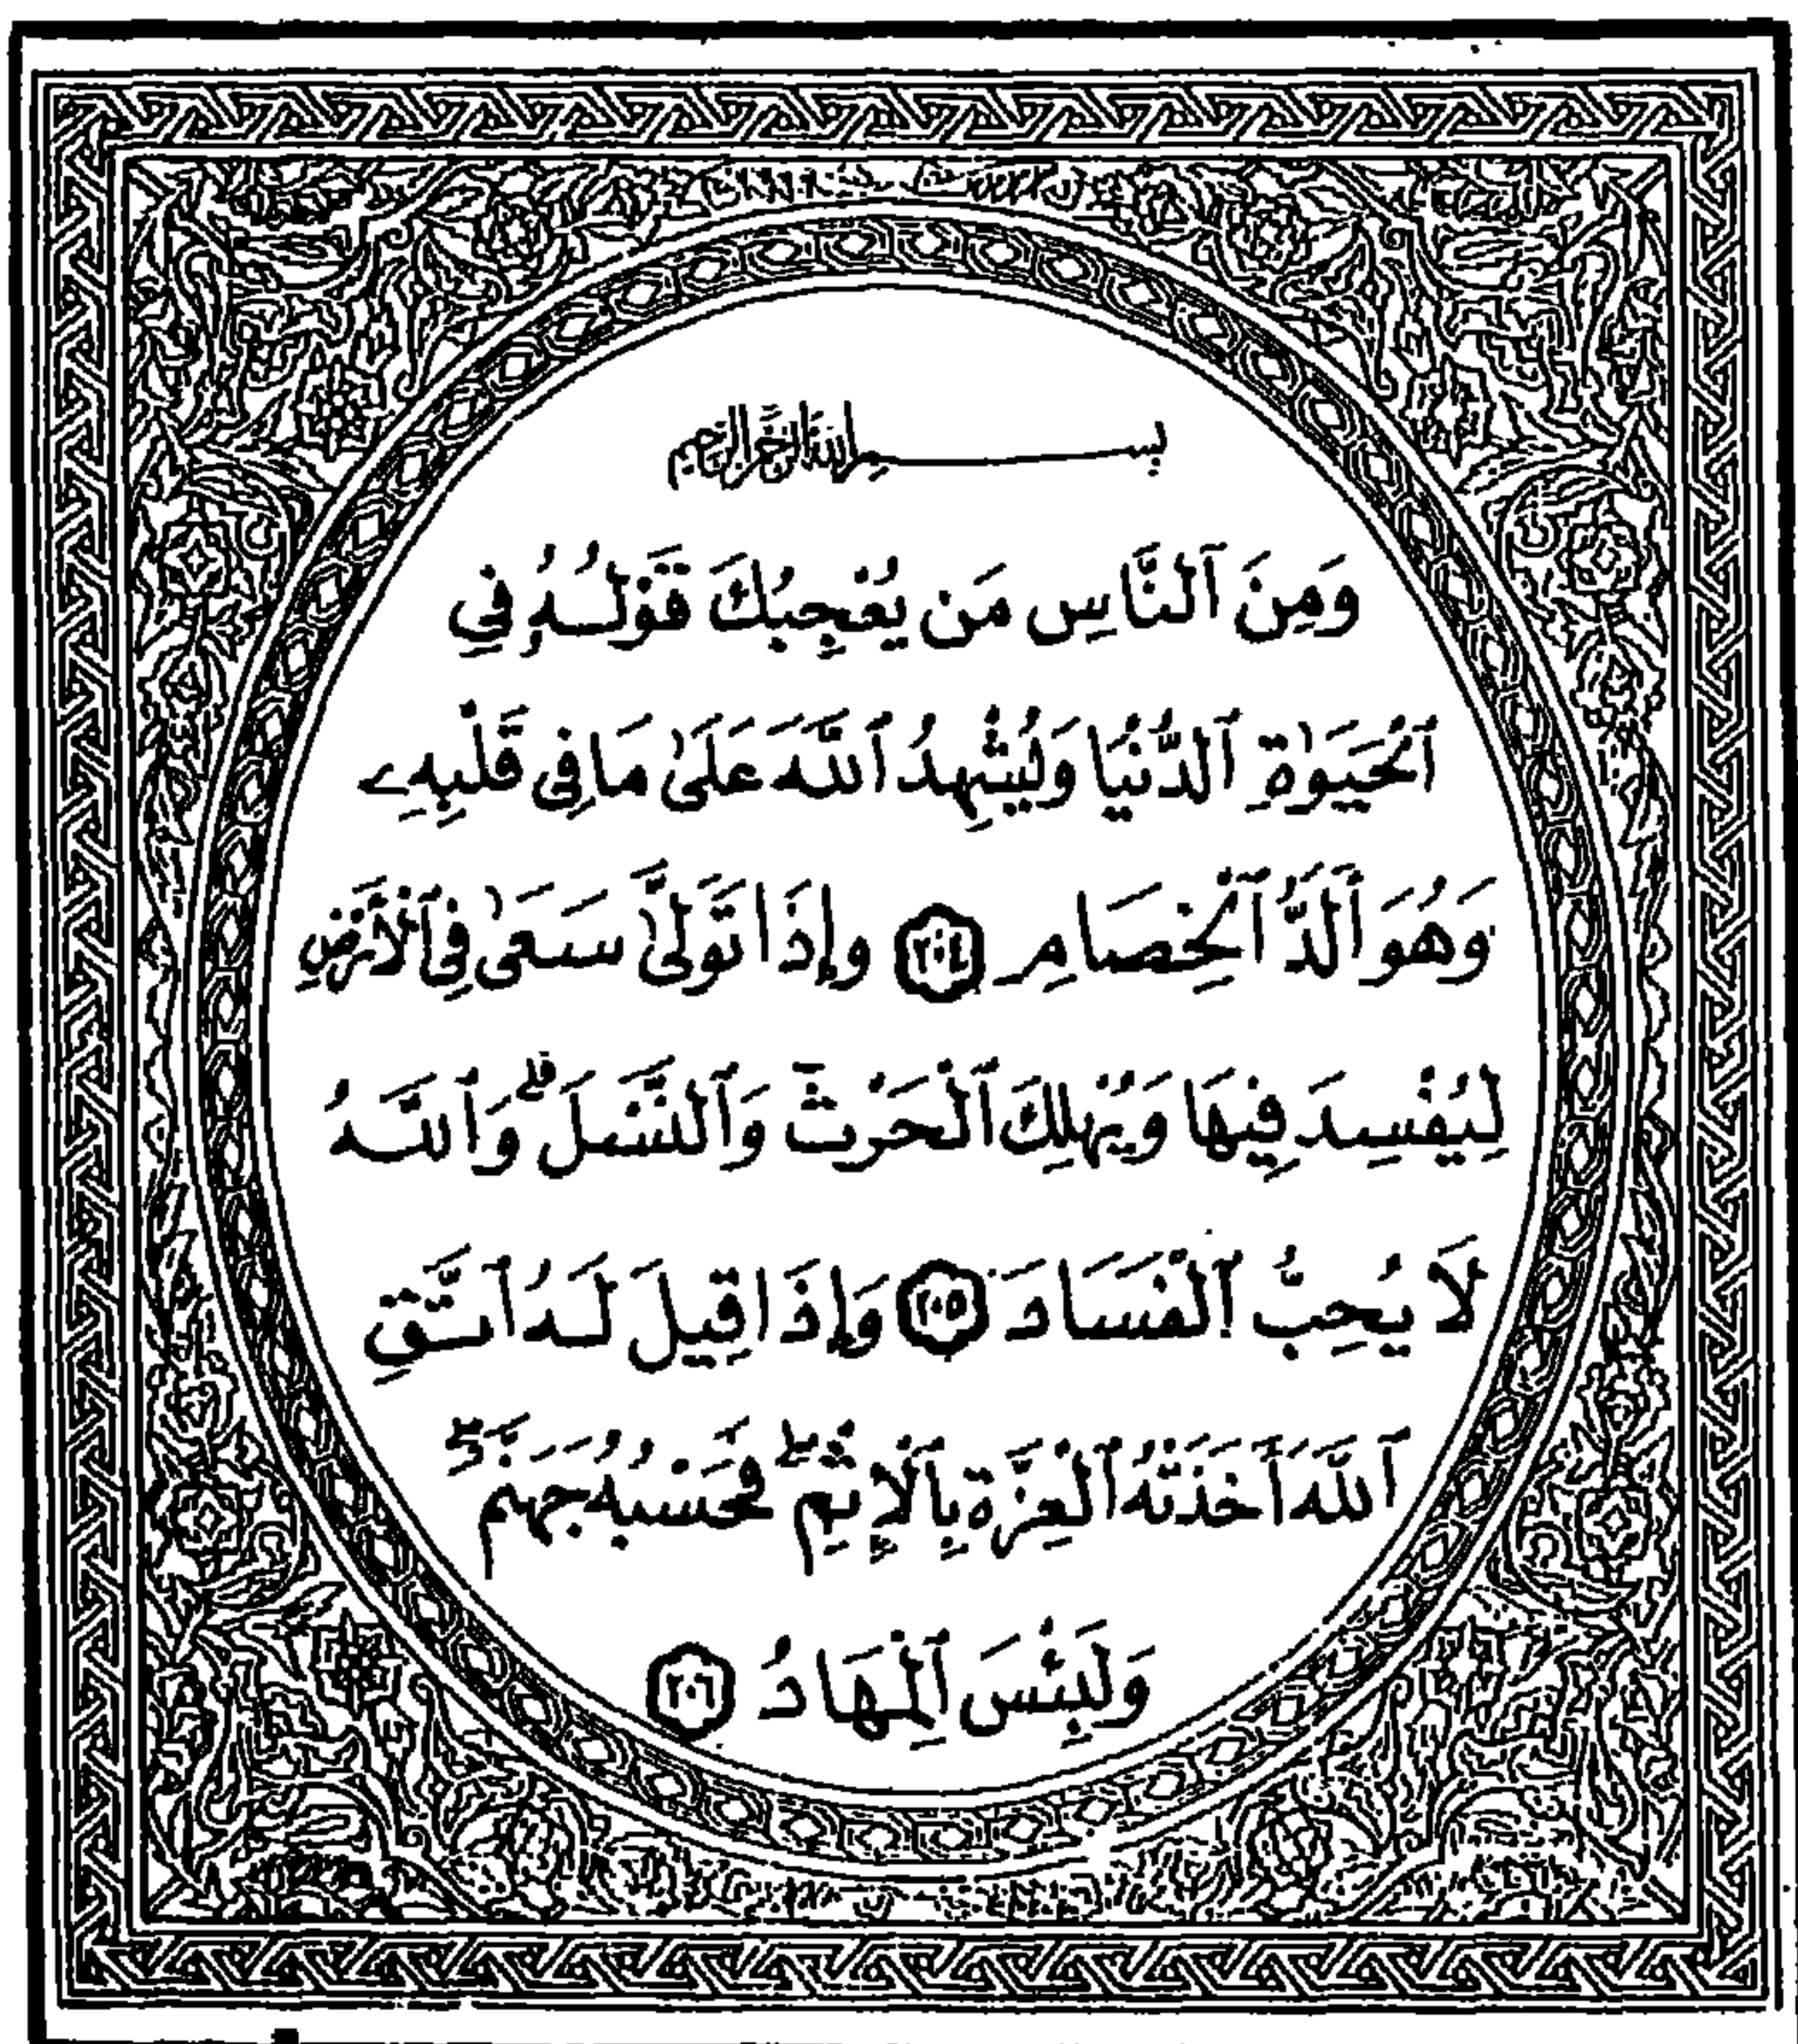 بِسْمِ اللَّهِ الرَّحْمَٰنِ الرَّحِيمِ
وَمِنَ ٱلنَّاسِ مَن يُعْجِبُكَ قَوْلُهُۥ فِي
ٱلْحَيَوٰةِ ٱلدُّنْيَا وَيُشْهِدُ ٱللَّهَ عَلَىٰ مَا فِي قَلْبِهِۦ
وَهُوَ أَلَدُّ ٱلْخِصَامِ ٢٠٤ وإِذَا تَوَلَّىٰ سَعَىٰ فِي ٱلْأَرْضِ
لِيُفْسِدَ فِيهَا وَيُهْلِكَ ٱلْحَرْثَ وَٱلنَّسْلَ ۗ وَٱللَّهُ
لَا يُحِبُّ ٱلْفَسَادَ ٢٠٥ وَإِذَا قِيلَ لَهُ ٱتَّقِ
ٱللَّهَ أَخَذَتْهُ ٱلْعِزَّةُ بِٱلْإِثْمِ ۚ فَحَسْبُهُ جَهَنَّمُ ۚ
وَلَبِئْسَ ٱلْمِهَادُ ٢٠٦